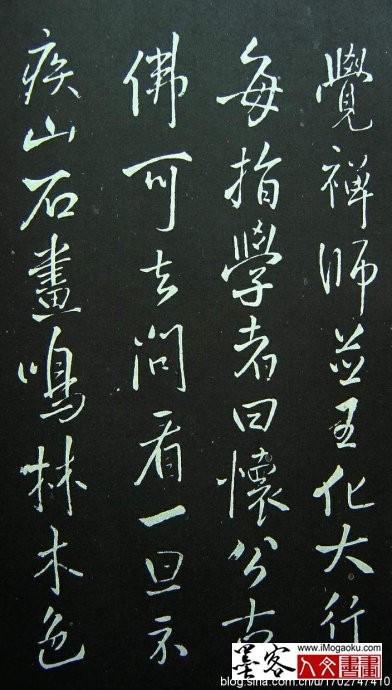 覺禪師並主化大行
每指學者曰懷公古
佛可去問看一旦示
疾山石晝鳴林木色
墨客
www.iMogaoku.com
人文書畫
blog.sina.com.cn/u/1702747410